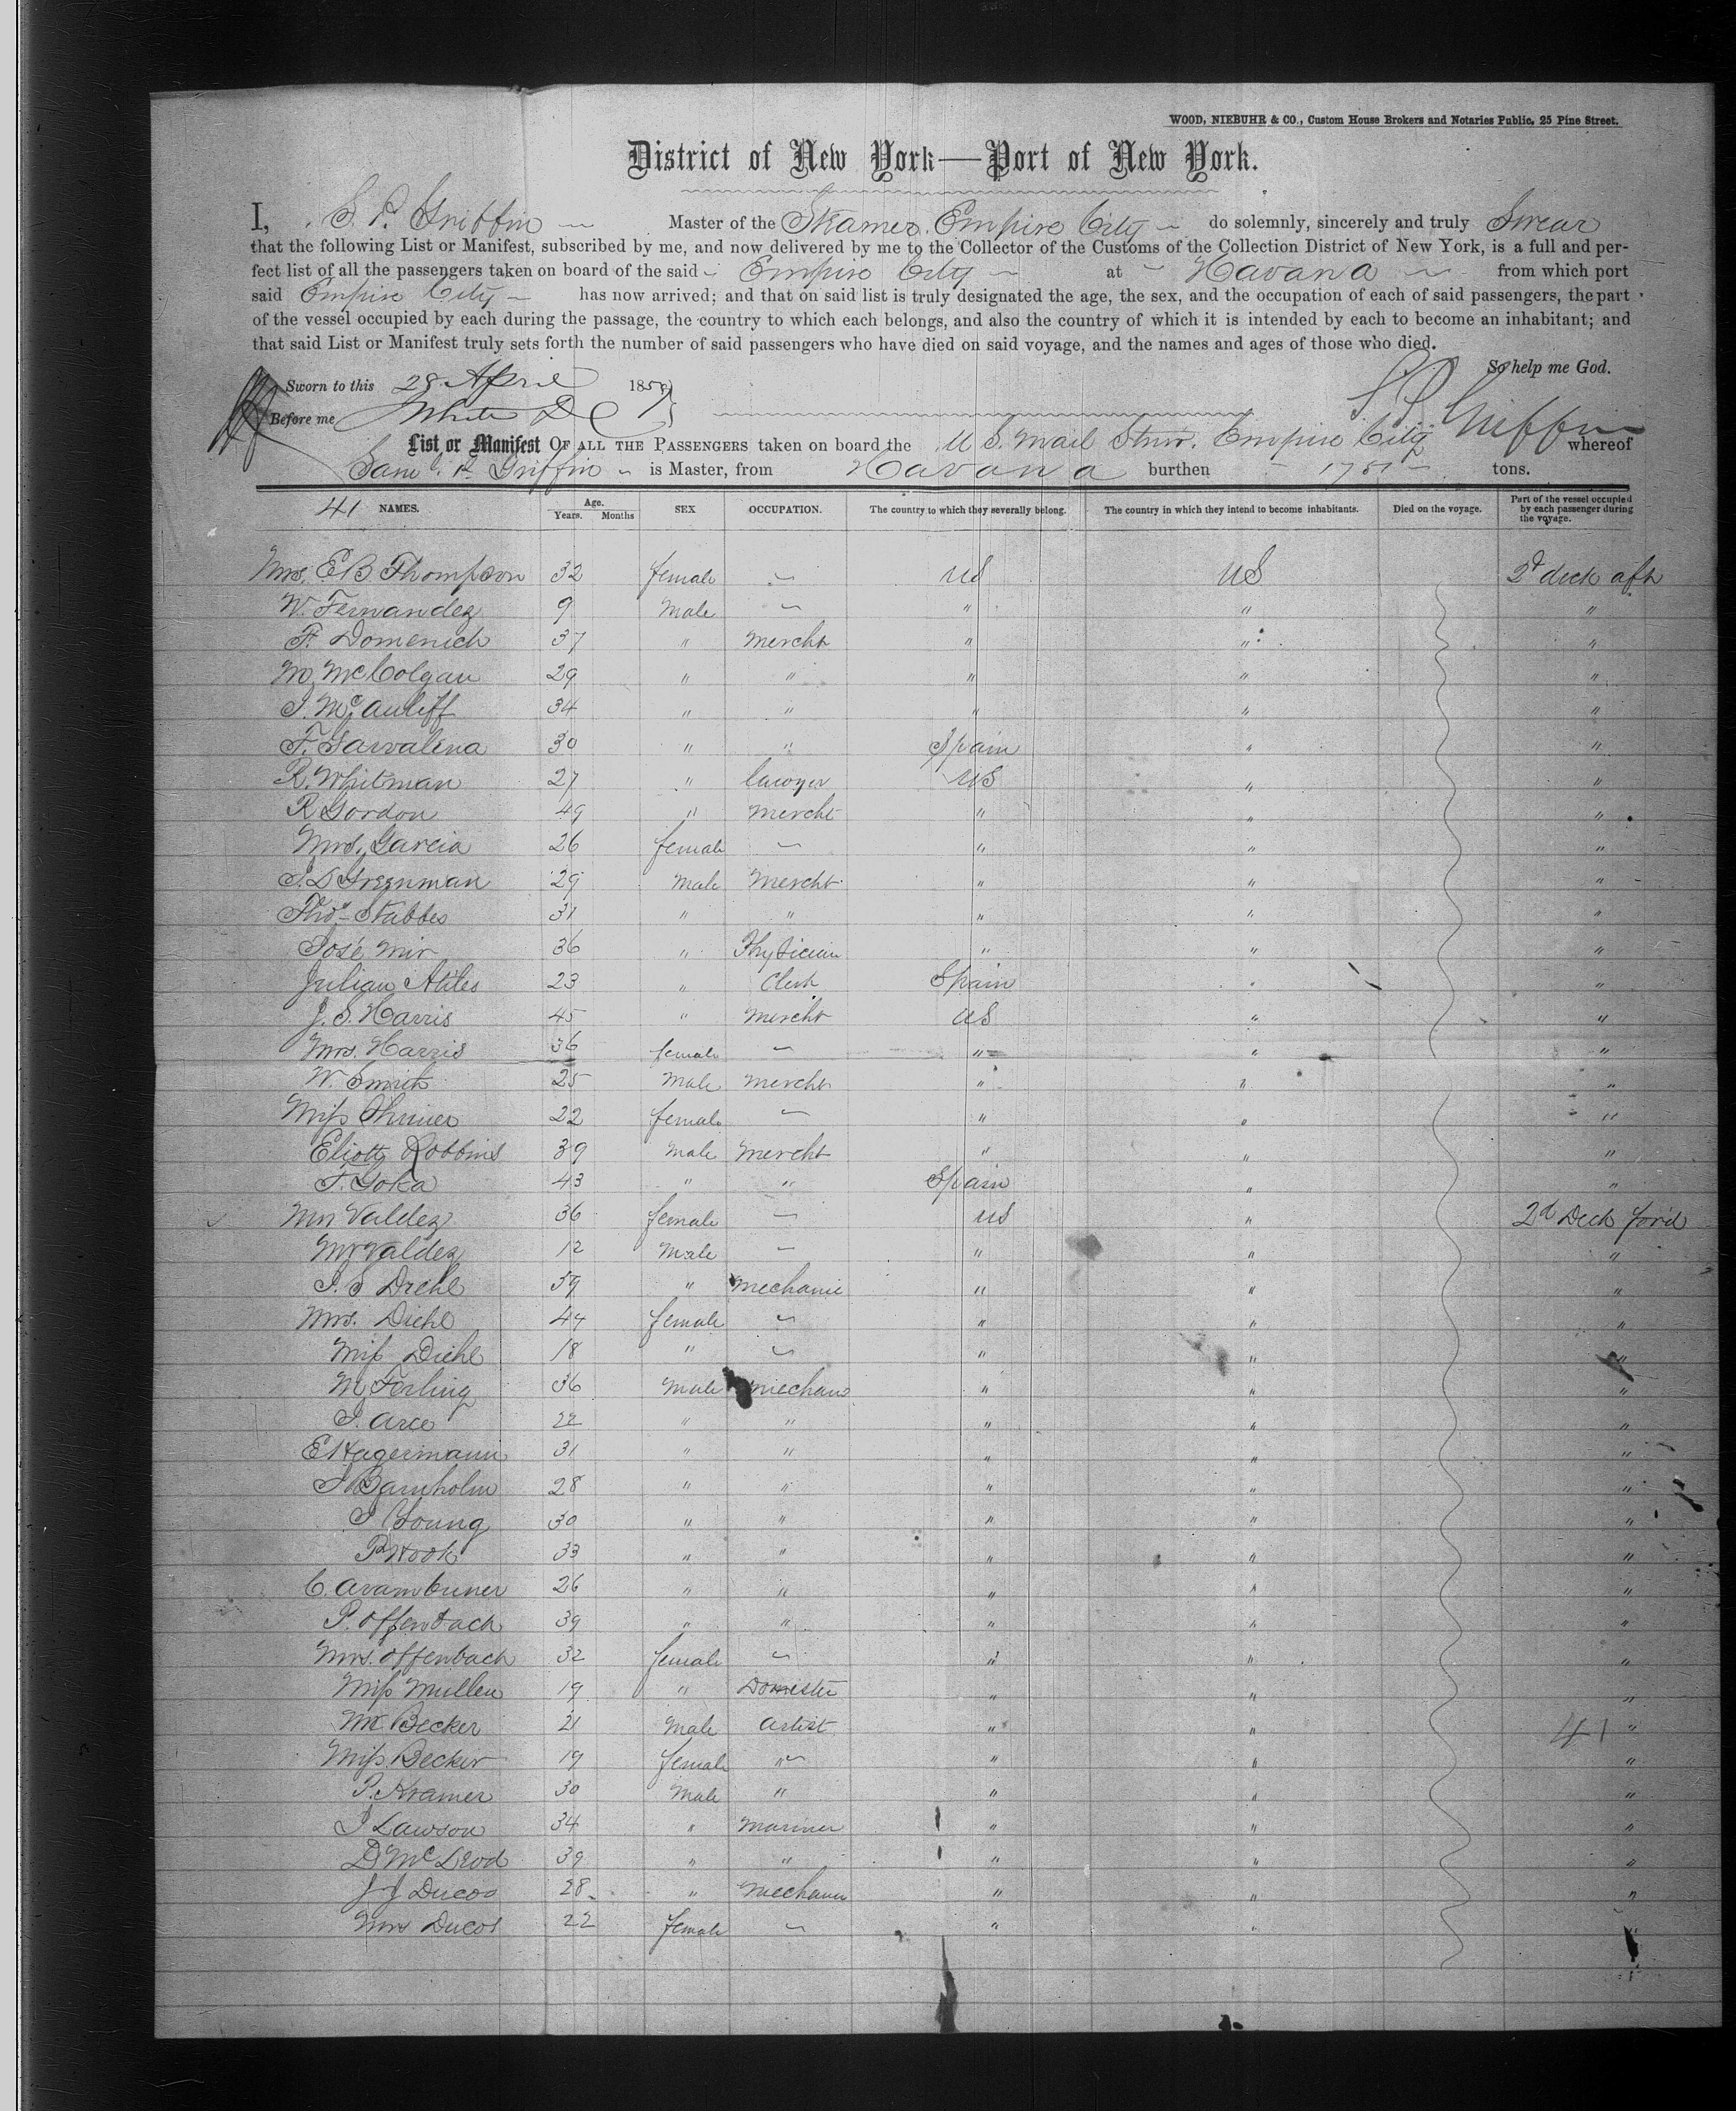 WOOD, NIEBUHR & CO., Custom House Brokers and Notaries Public, 25 Pine Street.
District of New York—Port of New York.
I, S. P. Griffin Master of the Steamer Empire City do solemnly, sincerely and truly Swear
that the following List or Manifest, subscribed by me, and now delivered by me to the Collector of the Customs of the Collection District of New York, is a full and per-
fect list of all the passengers taken on board of the said Empire City at Havana from which port
said Empire City has now arrived; and that on said list is truly designated the age, the sex, and the occupation of each of said passengers, the part
of the vessel occupied by each during the passage, the country to which each belongs, and also the country of which it is intended by each to become an inhabitant; and
that said List or Manifest truly sets forth the number of said passengers who have died on said voyage, and the names and ages of those who died.
So help me God.
Sworn to this 28 April 185
Before me White D C
S P Griffin
List or Manifest OF ALL THE PASSENGERS taken on board the U S. Mail Stmr. Empire City whereof
Saml. P. Griffin is Master, from Havana burthen 1751 tons.
41 NAMES. Age. Years. Months SEX OCCUPATION. The country to which they severally belong. The country in which they intend to become inhabitants. Died on the voyage. Part of the vessel occupied by each passenger during the voyage.
Mrs. E B Thompson 32 female US US 2d deck aft
W. Fernandez 9 Male " " "
F. Domenich 37 " Mercht " " "
M. McColgan 29 " " " " "
J. McAuliff 34 " " " " "
F. 30 " " Spain " "
R. Whitman 27 " Lawyer US " "
R Gordon 49 " Mercht " " "
Mrs. Garcia 26 female " " "
J. D Greenman 29 Male Mercht " " "
Thos. Stubbes 31 " " " " "
José Mir 36 " Physician " " "
Julian Atiles 23 " Clerk Spain " "
J. S. Harris 45 " Mercht US " "
Mrs. Harris 36 female " " "
W. Smith 25 Male Mercht " " "
Miss 22 female " " "
Eliott Robbins 39 Male Mercht " " "
F. Goka 43 " " Spain " "
Mrs Valdez 36 female US " 2d Deck for'd
Mr Valdez 12 Male " " "
J. S Diehl 59 " Mechanic " " "
Mrs. Diehl 44 female " " "
Miss Diehl 18 " " " "
M Ferling 36 Male Mechanic " " "
J. Arce 22 " " " " "
E Hagermann 31 " " " " "
J Barnholm 28 " " " " "
J Young 30 " " " " "
P Hook 33 " " " " "
C. 26 " " " " "
P. Offenbach 39 " " " " "
Mrs. Offenbach 32 female " " "
Miss Mullen 19 " Domestic " " "
Mr. Becker 21 Male Artist " " 41 "
Miss Becker 19 female " " " "
P. Kramer 30 Male " " " "
J Lawson 34 " Mariner " " "
D McLeod 39 " " " " "
J J Ducos 28 " Mechanic " " "
Mrs Ducos 22 female " " "